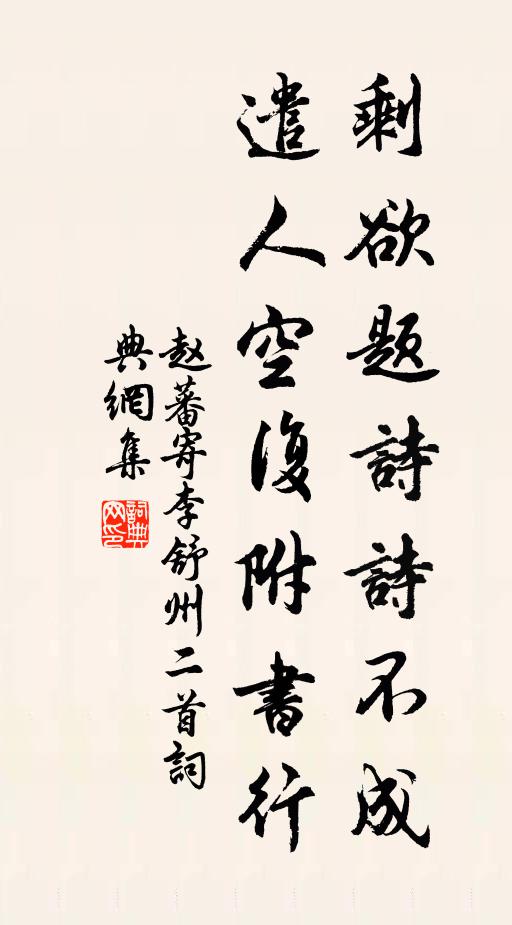 剩欲題詩詩不成
遣人空復附書行
赵蕃寄李舒州二首詞
典網集
詞典网印